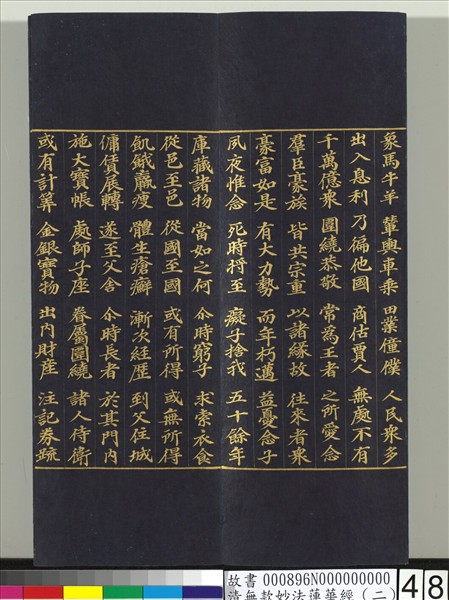 象馬牛羊 輦輿車乘 田業僮僕 人民衆多
出入息利 乃徧他國 商估賈人 無處不有
千萬億衆 圍繞恭敬 常為王者 之所愛念
羣臣豪族 皆共宗重 以諸緣故 往來者衆
豪富如是 有大力勢 而年朽邁 益憂念子
夙夜惟念 死時將至 癡子捨我 五十餘年
庫藏諸物 當如之何 尒時窮子 求索衣食
從邑至邑 從國至國 或有所得 或無所得
飢餓羸瘦 體生瘡癬 漸次經歷 到父住城
傭賃展轉 遂至父舍 尒時長者 於其門內
施大寶帳 處師子座 眷屬圍繞 諸人侍衛
或有計筭 金銀寶物 出內財產 注記券疏
故書 000896N000000000
清無款妙法蓮華經(二)
48